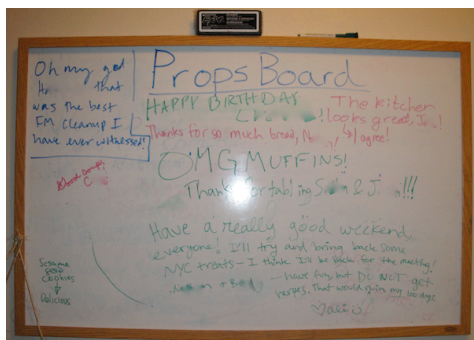 Oh my god
that
was the best
FM cleanup I
have ever witnessed!
Props Board
HAPPY BIRTHDAY
The kitchen
looks great,
I agree!
Thanks for so much bread,
OMG MUFFINS!
Thanks for tabling & J !!!
Have a really good weekend
everyone! I'll try and bring back some
NYC treats - I think I'll be back for the meeting!
- have fun, but DO NOT get
herpes. That would ruin my 100 days
Sesame
seed
cookies
Delicious